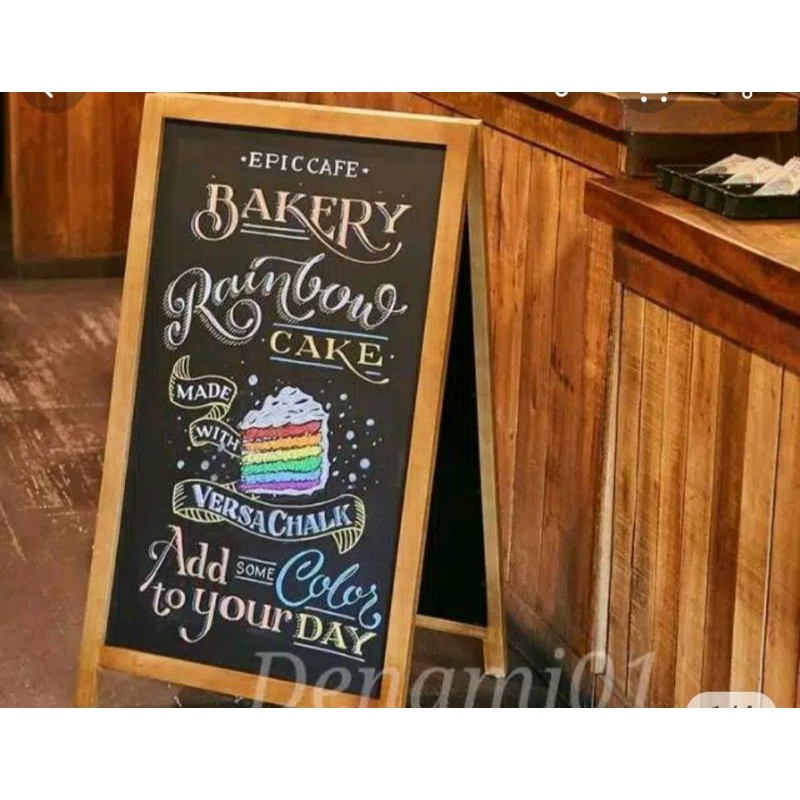 ·EPIC CAFE·
BAKERY
Rainbow
·CAKE·
MADE
WITH
VERSACHALK
Add SOME Color
to your DAY
Denami01